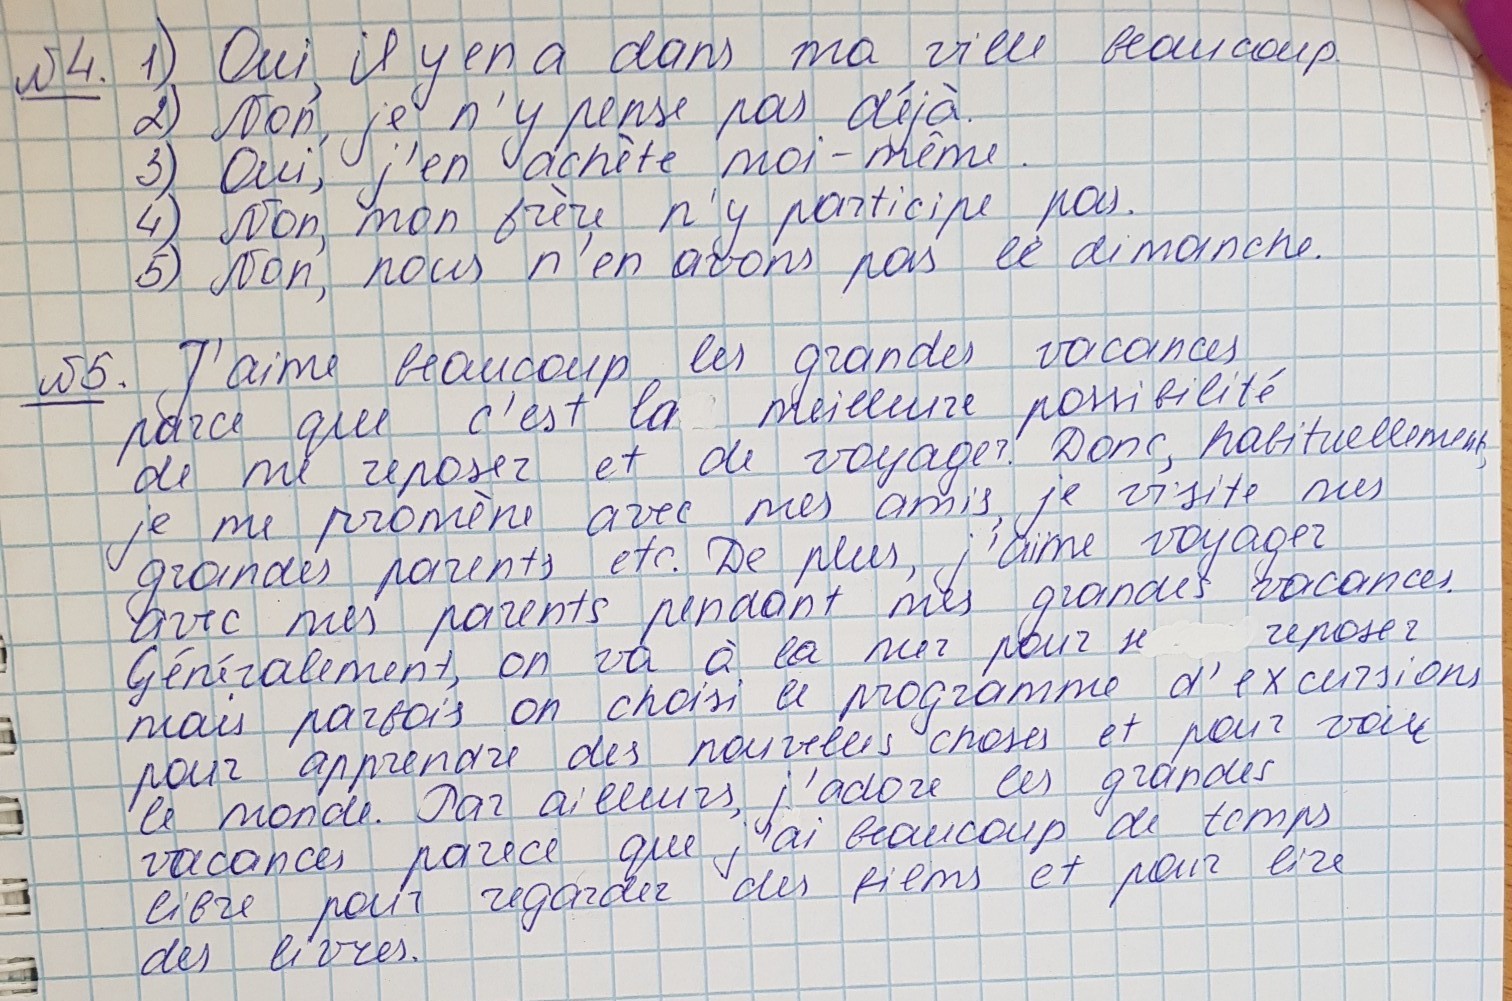 №4. 1) Oui, il y en a dans ma ville beaucoup.
2) Non, je n'y pense pas déjà.
3) Oui, j'en achète moi-même.
4) Non, mon frère n'y participe pas.
5) Non, nous n'en avons pas le dimanche.
№5. J'aime beaucoup les grandes vacances
parce que c'est la meilleure possibilité
de me reposer et de voyager. Donc, habituellement,
je me promène avec mes amis, je visite mes
grandes parents etc. De plus, j'aime voyager
avec mes parents pendant mes grandes vacances.
Généralement, on va à la mer pour se reposer
mais parfois on choisi le programme d'excursions
pour apprendre des nouvelles choses et pour voir
le monde. Par ailleurs, j'adore les grandes
vacances parece que j'ai beaucoup de temps
libre pour regarder des films et pour lire
des livres.